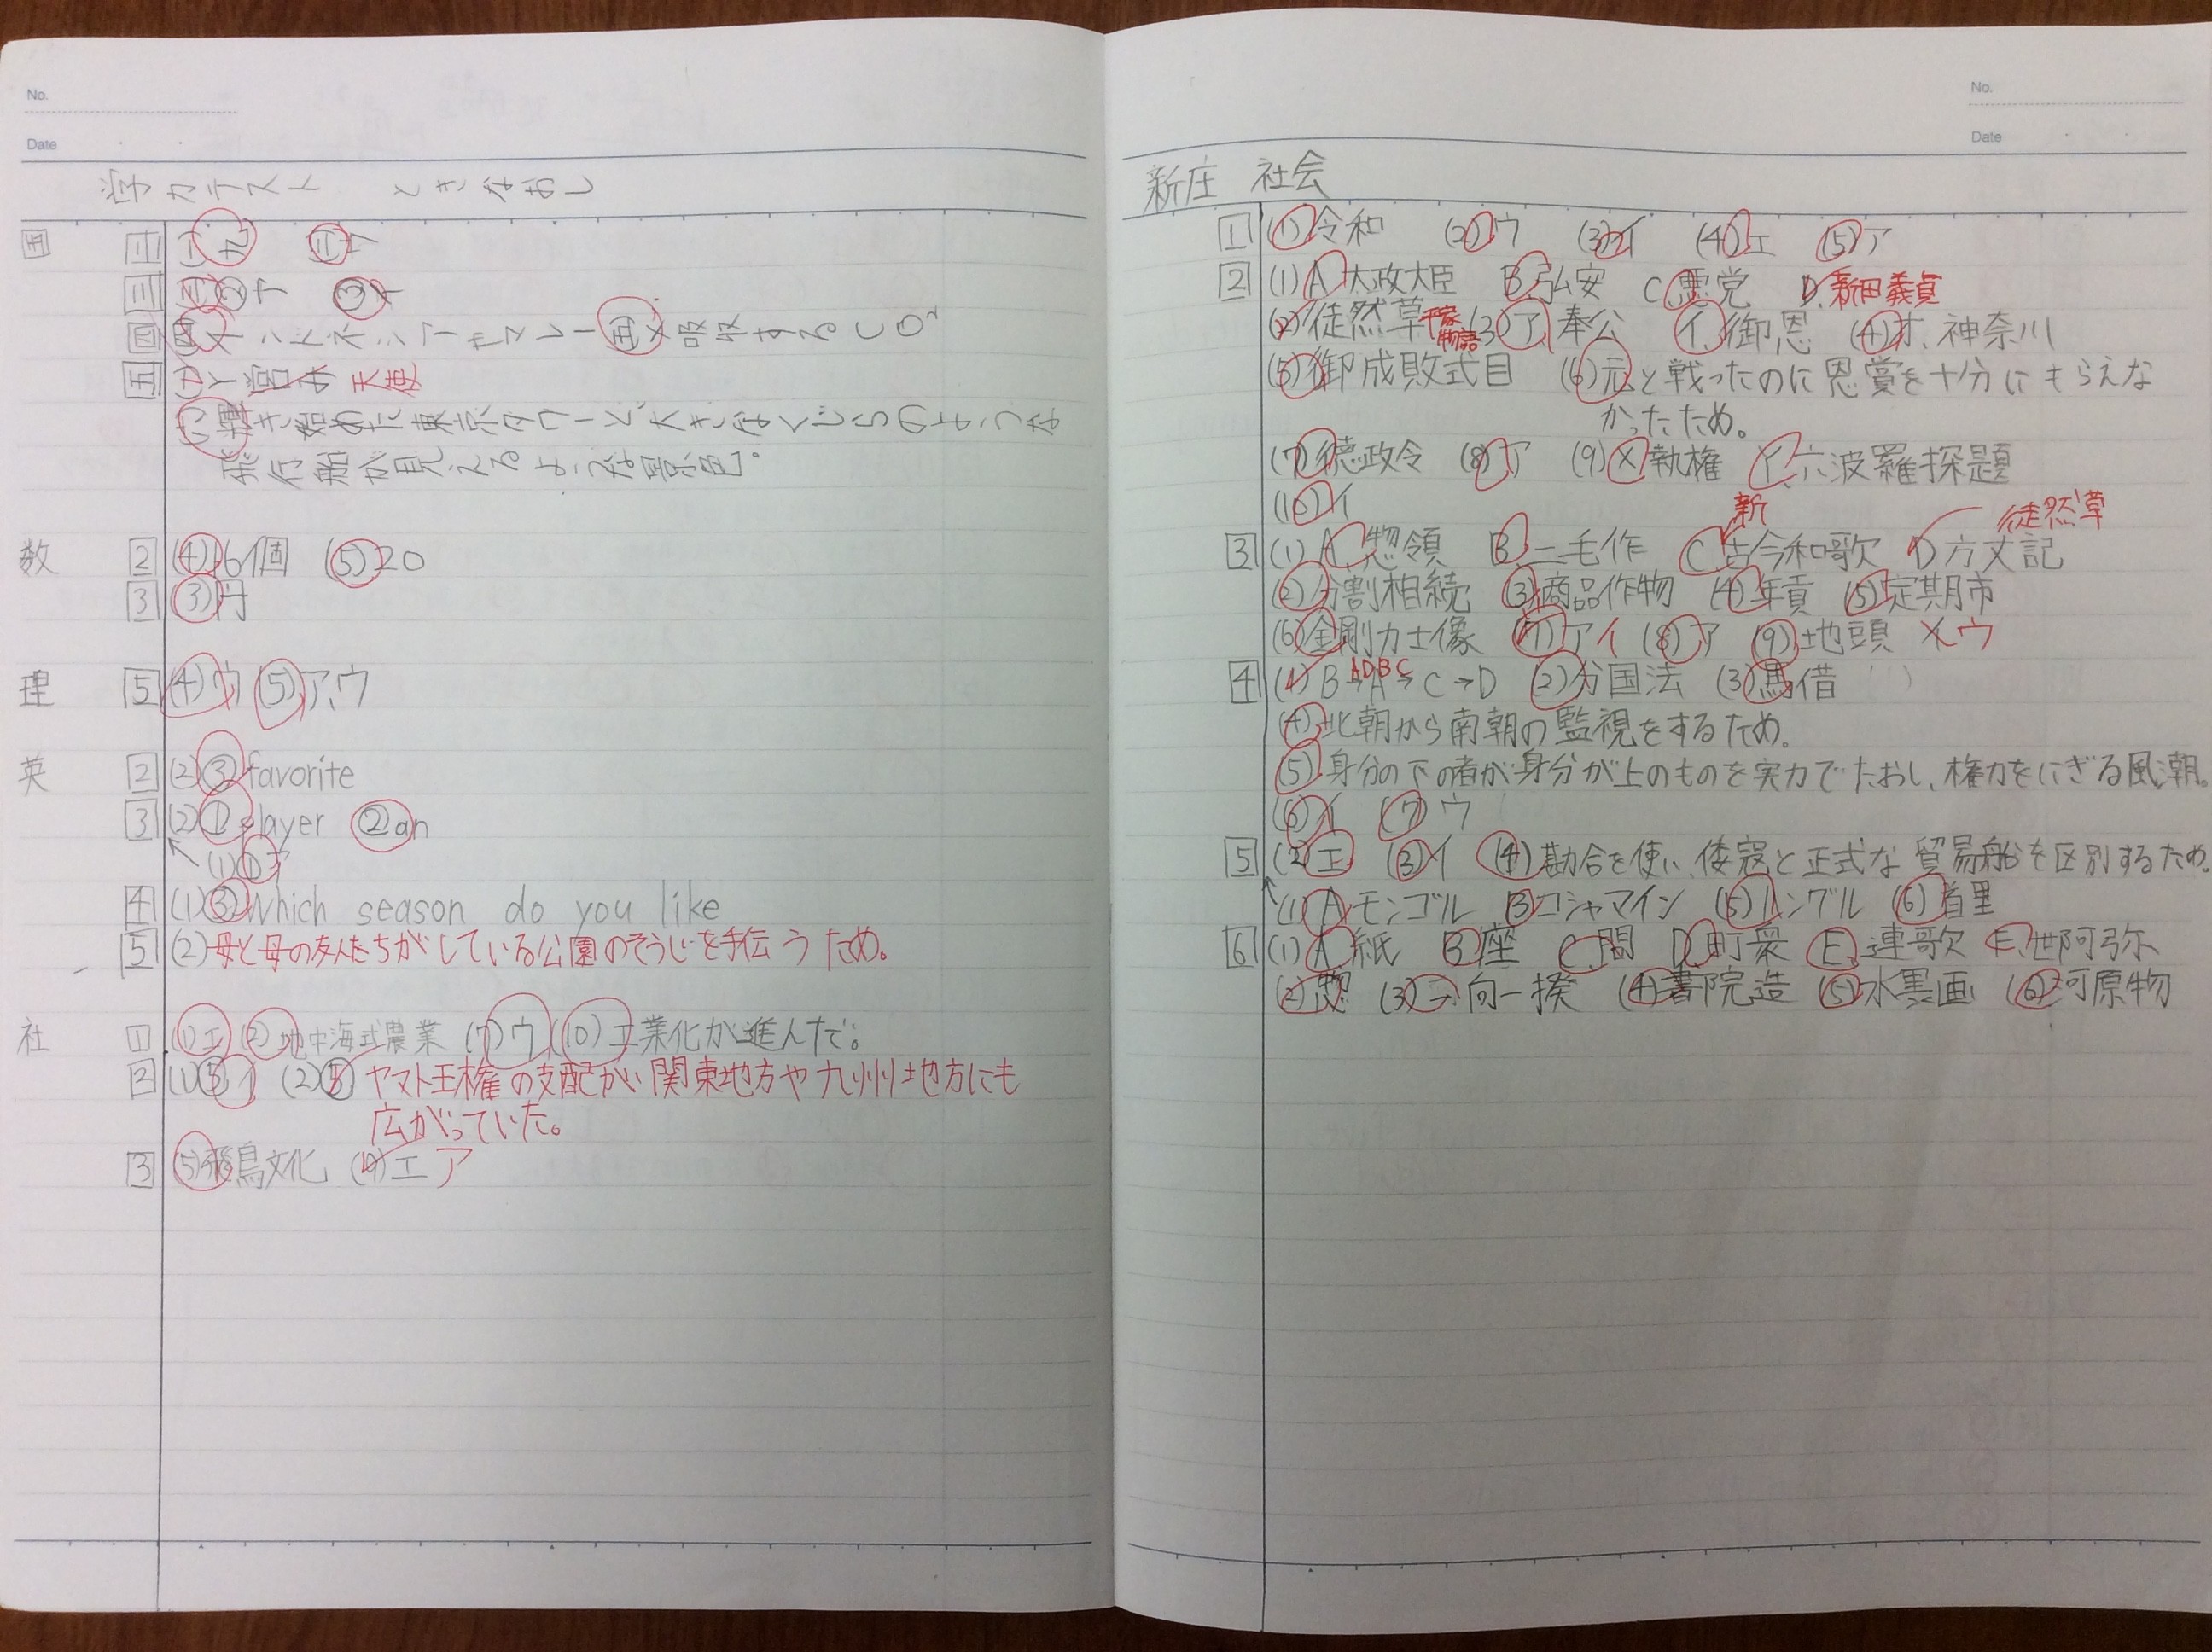 No.
Date
学力テスト ときなおし
国 二 (一)九 (三)ウ
三 (三)②ア ③イ
四 (四)インドネシアやマレー (五)メ吸収するCO2
五 (ア)Y営み 天使
(い)輝き始めた東京タワーと、大きなくじらのような
飛行船が見えるような景色。
数 2 (4)16個 (5)20
3 (3)円
理 5 (4)ウ (5)ア、ウ
英 2 (2)③favorite
3 (2)①player ②an
(1)①ア
4 (1)③Which season do you like
5 (2)母と母の友人たちがしている公園のそうじを手伝うため。
社 1 (1)エ (2)地中海式農業 (7)ウ (10)工業化が進んだ
2 (1)⑤イ (2)⑤ヤマト王権の支配が、関東地方や九州地方にも
広がっていた。
3 (5)飛鳥文化 (9)エ ア
No.
Date
新庄 社会
1 (1)令和 (2)ウ (3)イ (4)エ (5)ア
2 (1)A大政大臣 B弘安 C悪党 D新田義貞
(2)徒然草 平家物語 (3)ア奉公 イ、御恩 (4)オ、神奈川
(5)御成敗式目 (6)元と戦ったのに恩賞を十分にもらえな
かったため。
(7)徳政令 (8)ア (9)X執権 Y、六波羅探題
(10)イ
新 徒然草
3 (1)A惣領 B二毛作 C古今和歌 D方丈記
(2)分割相続 (3)商品作物 (4)年貢 (5)定期市
(6)金剛力士像 (7)アイ (8)ア (9)地頭 X、ウ
4 (1)B→A→C→D ADBC (2)分国法 (3)馬借
(4)北朝から南朝の監視をするため。
(5)身分の下の者が身分が上のものを実力でたおし、権力をにぎる風潮。
(6)イ (7)ウ
5 (2)エ (3)イ (4)勘合を使い、倭寇と正式な貿易船を区別するため。
(1)Aモンゴル Bコシャマイン (5)ハングル (6)首里
6 (1)A紙 B座 C問 D町衆 E、連歌 F、世阿弥
(2)惣 (3)一向一揆 (4)書院造 (5)水墨画 (6)河原物